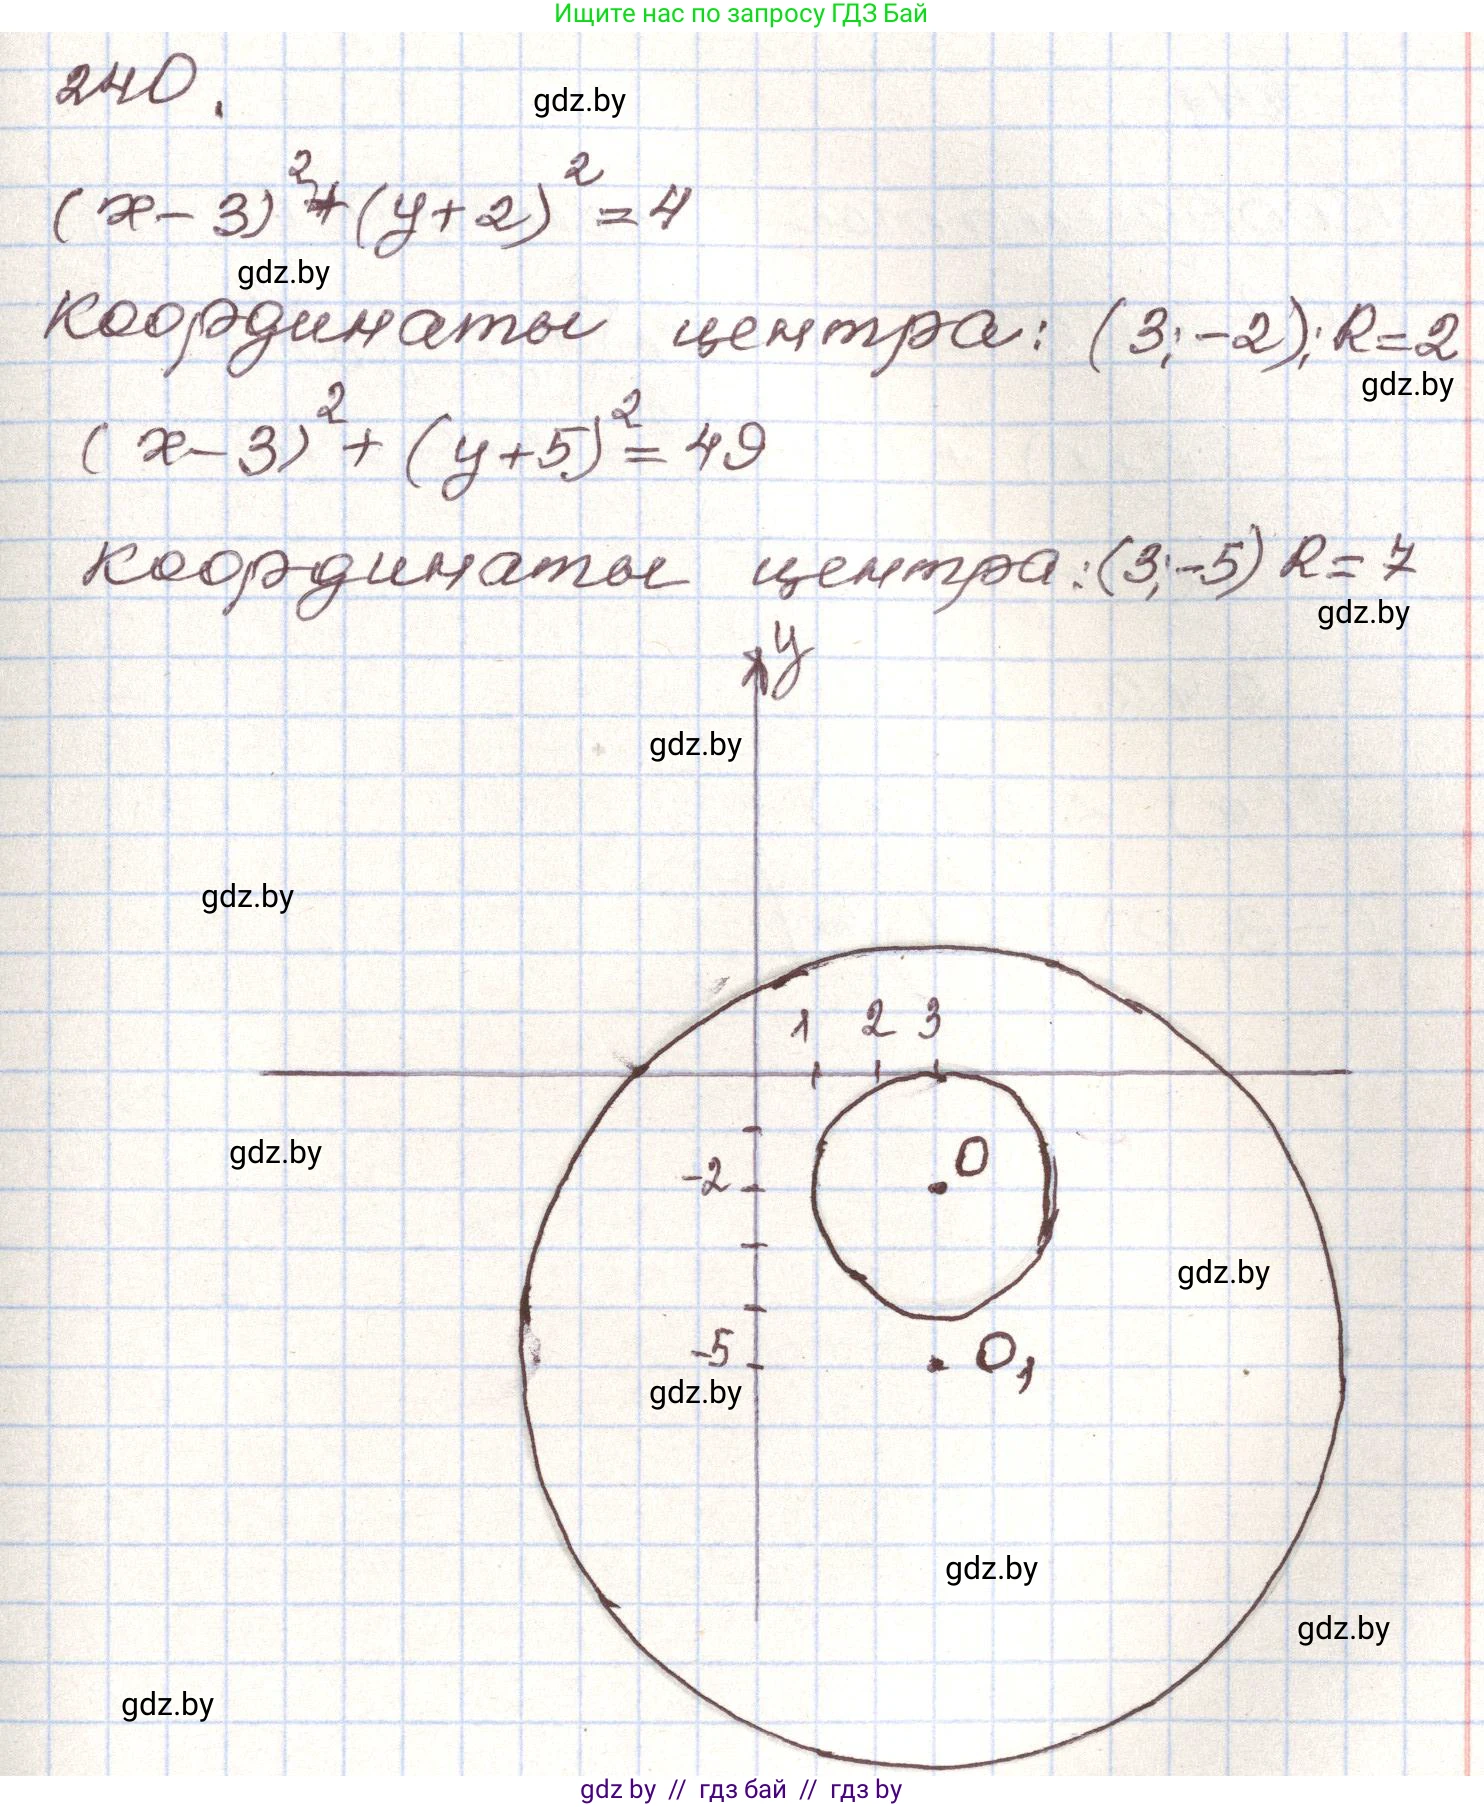 Ищите нас по запросу ГДЗ Бай
240.
gdz.by
(x-3)²+(y+2)²=4
gdz.by
Координаты центра: (3;-2); R=2
gdz.by
(x-3)²+(y+5)²=49
Координаты центра: (3;-5) R=7
gdz.by
y
gdz.by
gdz.by
1 2 3
gdz.by
O
-2
gdz.by
-5
O₁
gdz.by
gdz.by
gdz.by
gdz.by
gdz by // гдз бай // гдз by